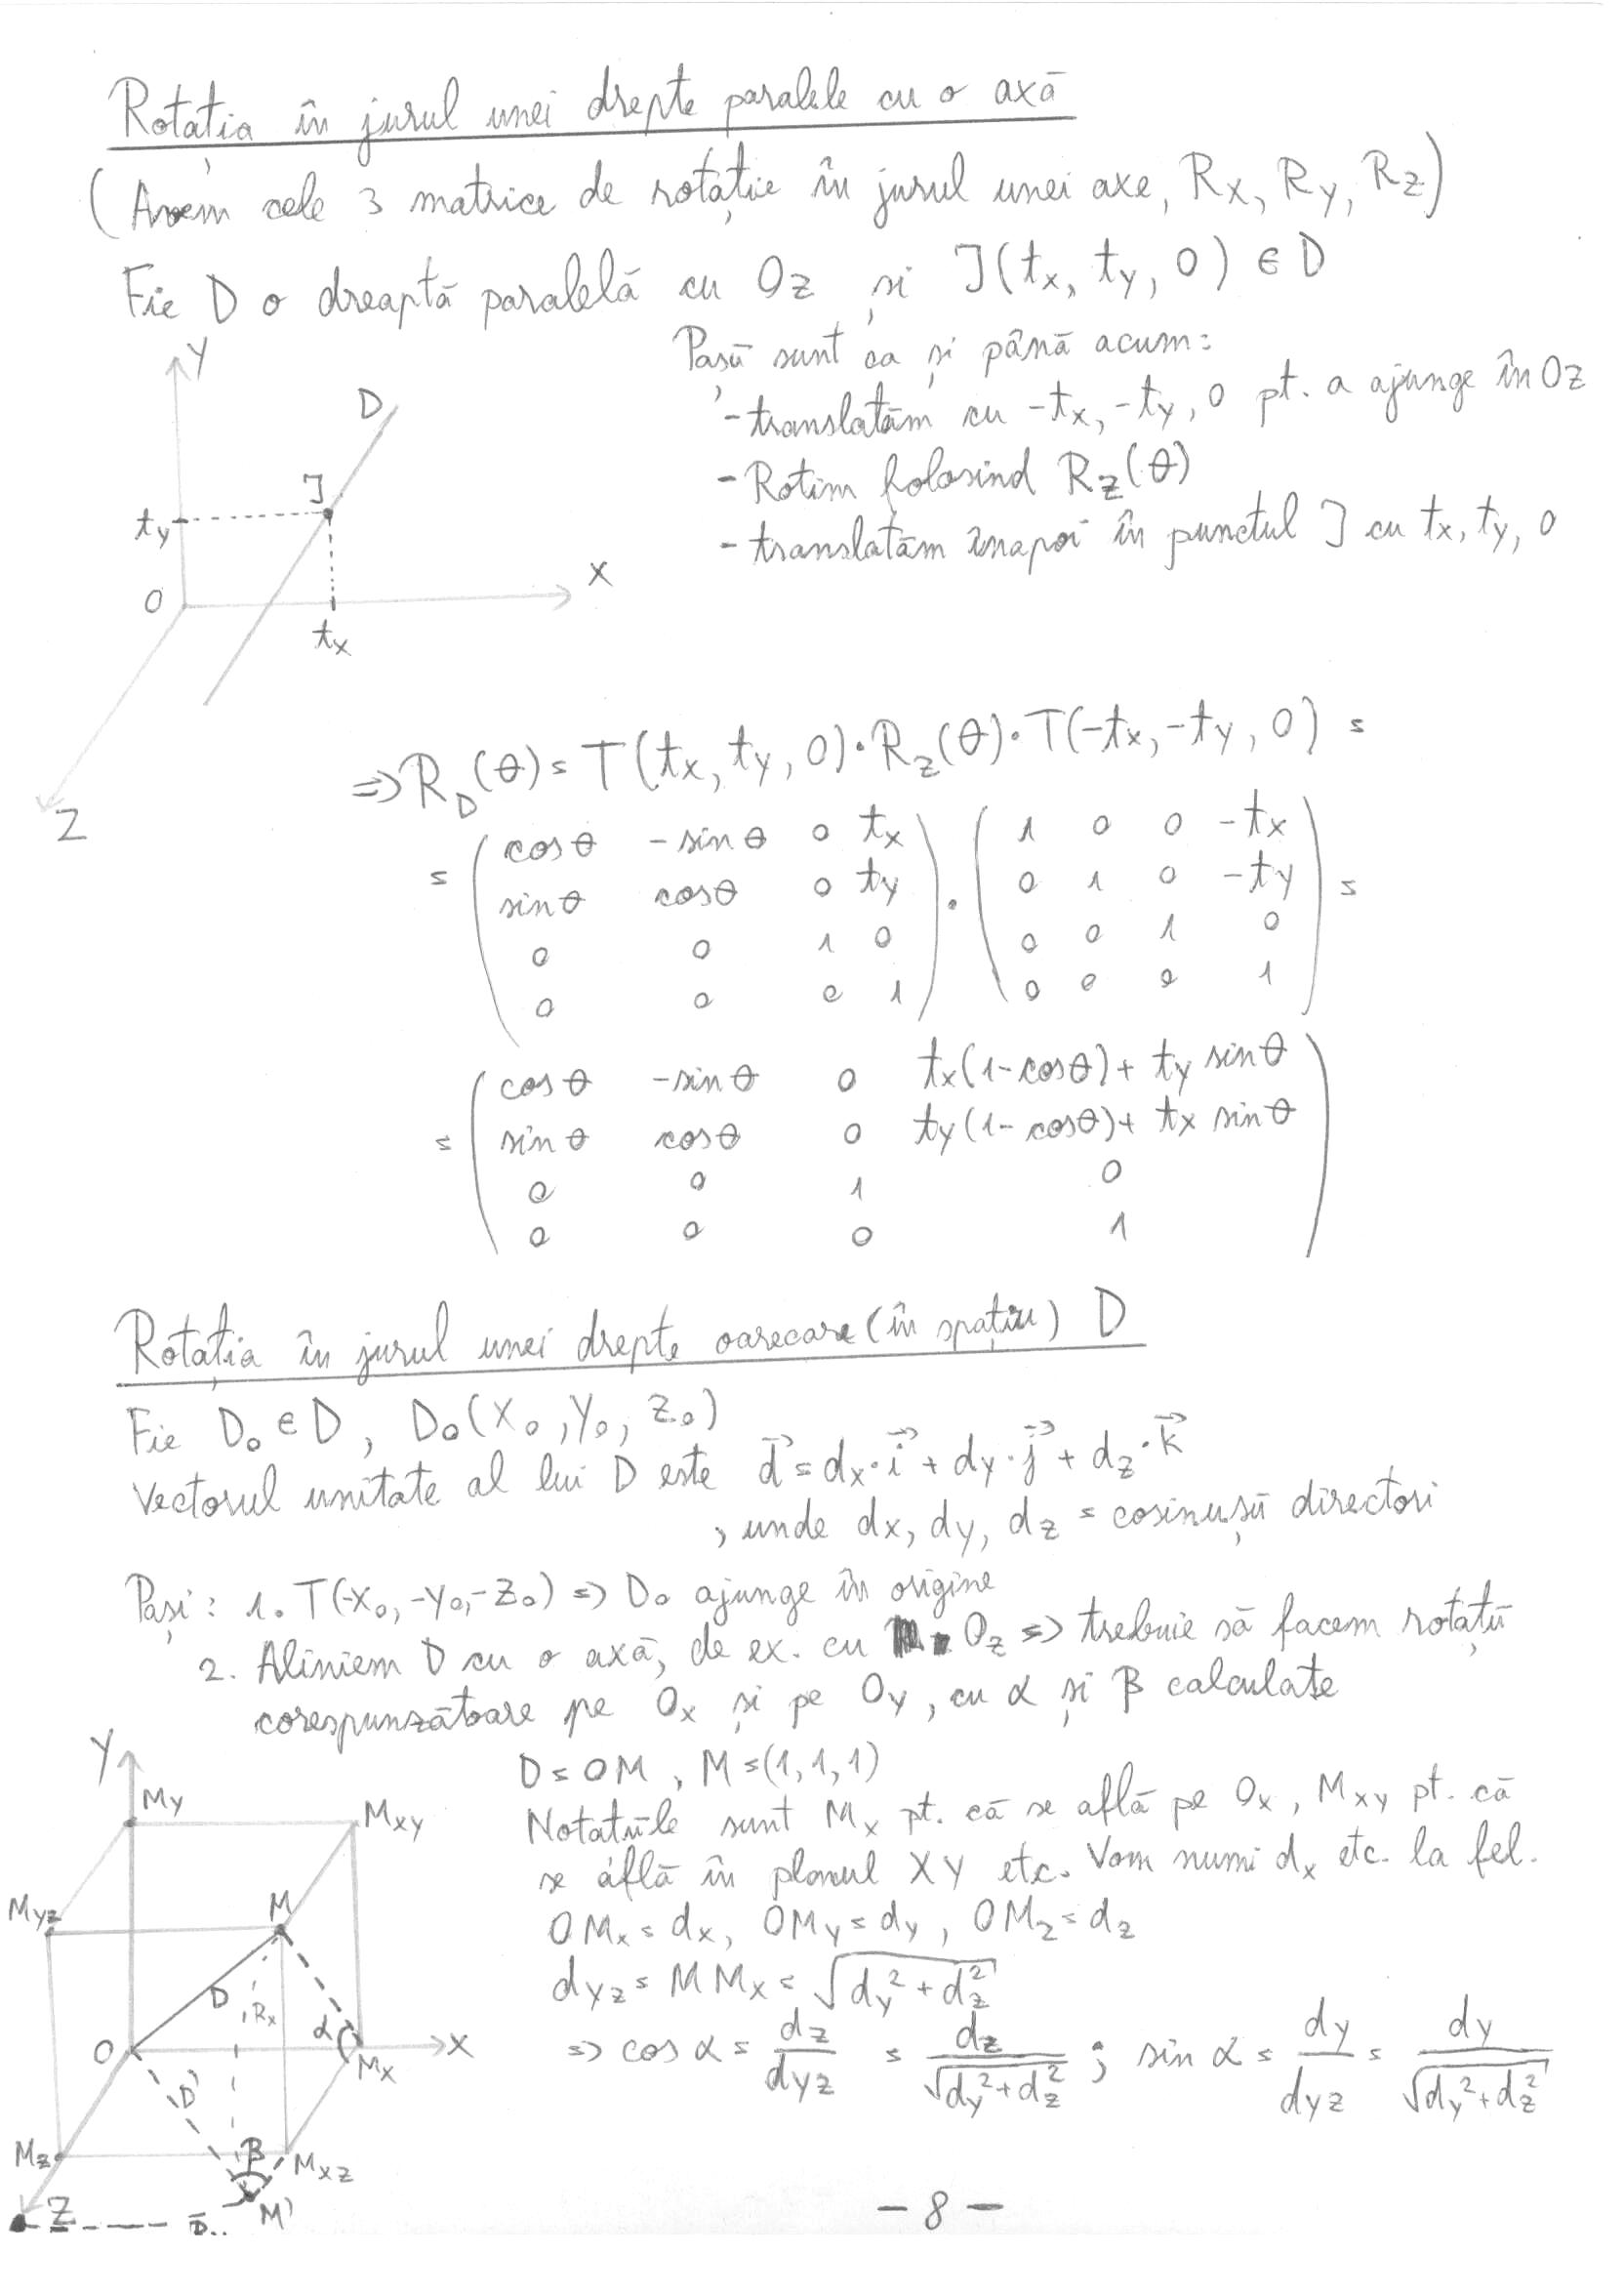 Rotația în jurul unei drepte paralele cu o axă
(Avem cele 3 matrice de rotație în jurul unei axe, Rx, Ry, Rz)
Fie D o dreaptă paralelă cu Oz și J(tx, ty, 0) ∈ D
Pașii sunt ca și până acum:
-translatăm cu -tx, -ty, 0 pt. a ajunge în Oz
-Rotim folosind Rz(θ)
-translatăm înapoi în punctul J cu tx, ty, 0
Y
D
J
ty
O
X
tx
Z
=> R_D(θ) = T(tx, ty, 0)·Rz(θ)·T(-tx, -ty, 0) =
= ( cosθ -sinθ 0 tx ) · ( 1 0 0 -tx ) =
sinθ cosθ 0 ty 0 1 0 -ty
0 0 1 0 0 0 1 0
0 0 0 1 0 0 0 1
= ( cosθ -sinθ 0 tx(1-cosθ)+ ty sinθ )
sinθ cosθ 0 ty(1-cosθ)+ tx sinθ
0 0 1 0
0 0 0 1
Rotația în jurul unei drepte oarecare (în spațiu) D
Fie D₀ ∈ D, D₀(X₀, Y₀, Z₀)
Vectorul unitate al lui D este d⃗ = dx·i⃗ + dy·j⃗ + dz·k⃗
, unde dx, dy, dz = cosinușii directori
Pași: 1. T(-X₀, -Y₀, -Z₀) => D₀ ajunge în origine
2. Aliniem D cu o axă, de ex. cu Oz => trebuie să facem rotații
corespunzătoare pe Ox și pe Oy, cu α și β calculate
D = OM, M = (1, 1, 1)
Notațiile sunt Mx pt. că se află pe Ox, Mxy pt. că
se află în planul XY etc. Vom numi dx etc. la fel.
OMx = dx, OMy = dy, OMz = dz
dyz = MMx = √(dy²+dz²)
=> cos α = dz/dyz = dz/√(dy²+dz²) ; sin α = dy/dyz = dy/√(dy²+dz²)
Y
My
Mxy
Myz
M
D
Rx
α
O
X
Mx
D'
Mz
β
Mxz
M'
Z
D..
- 8 -